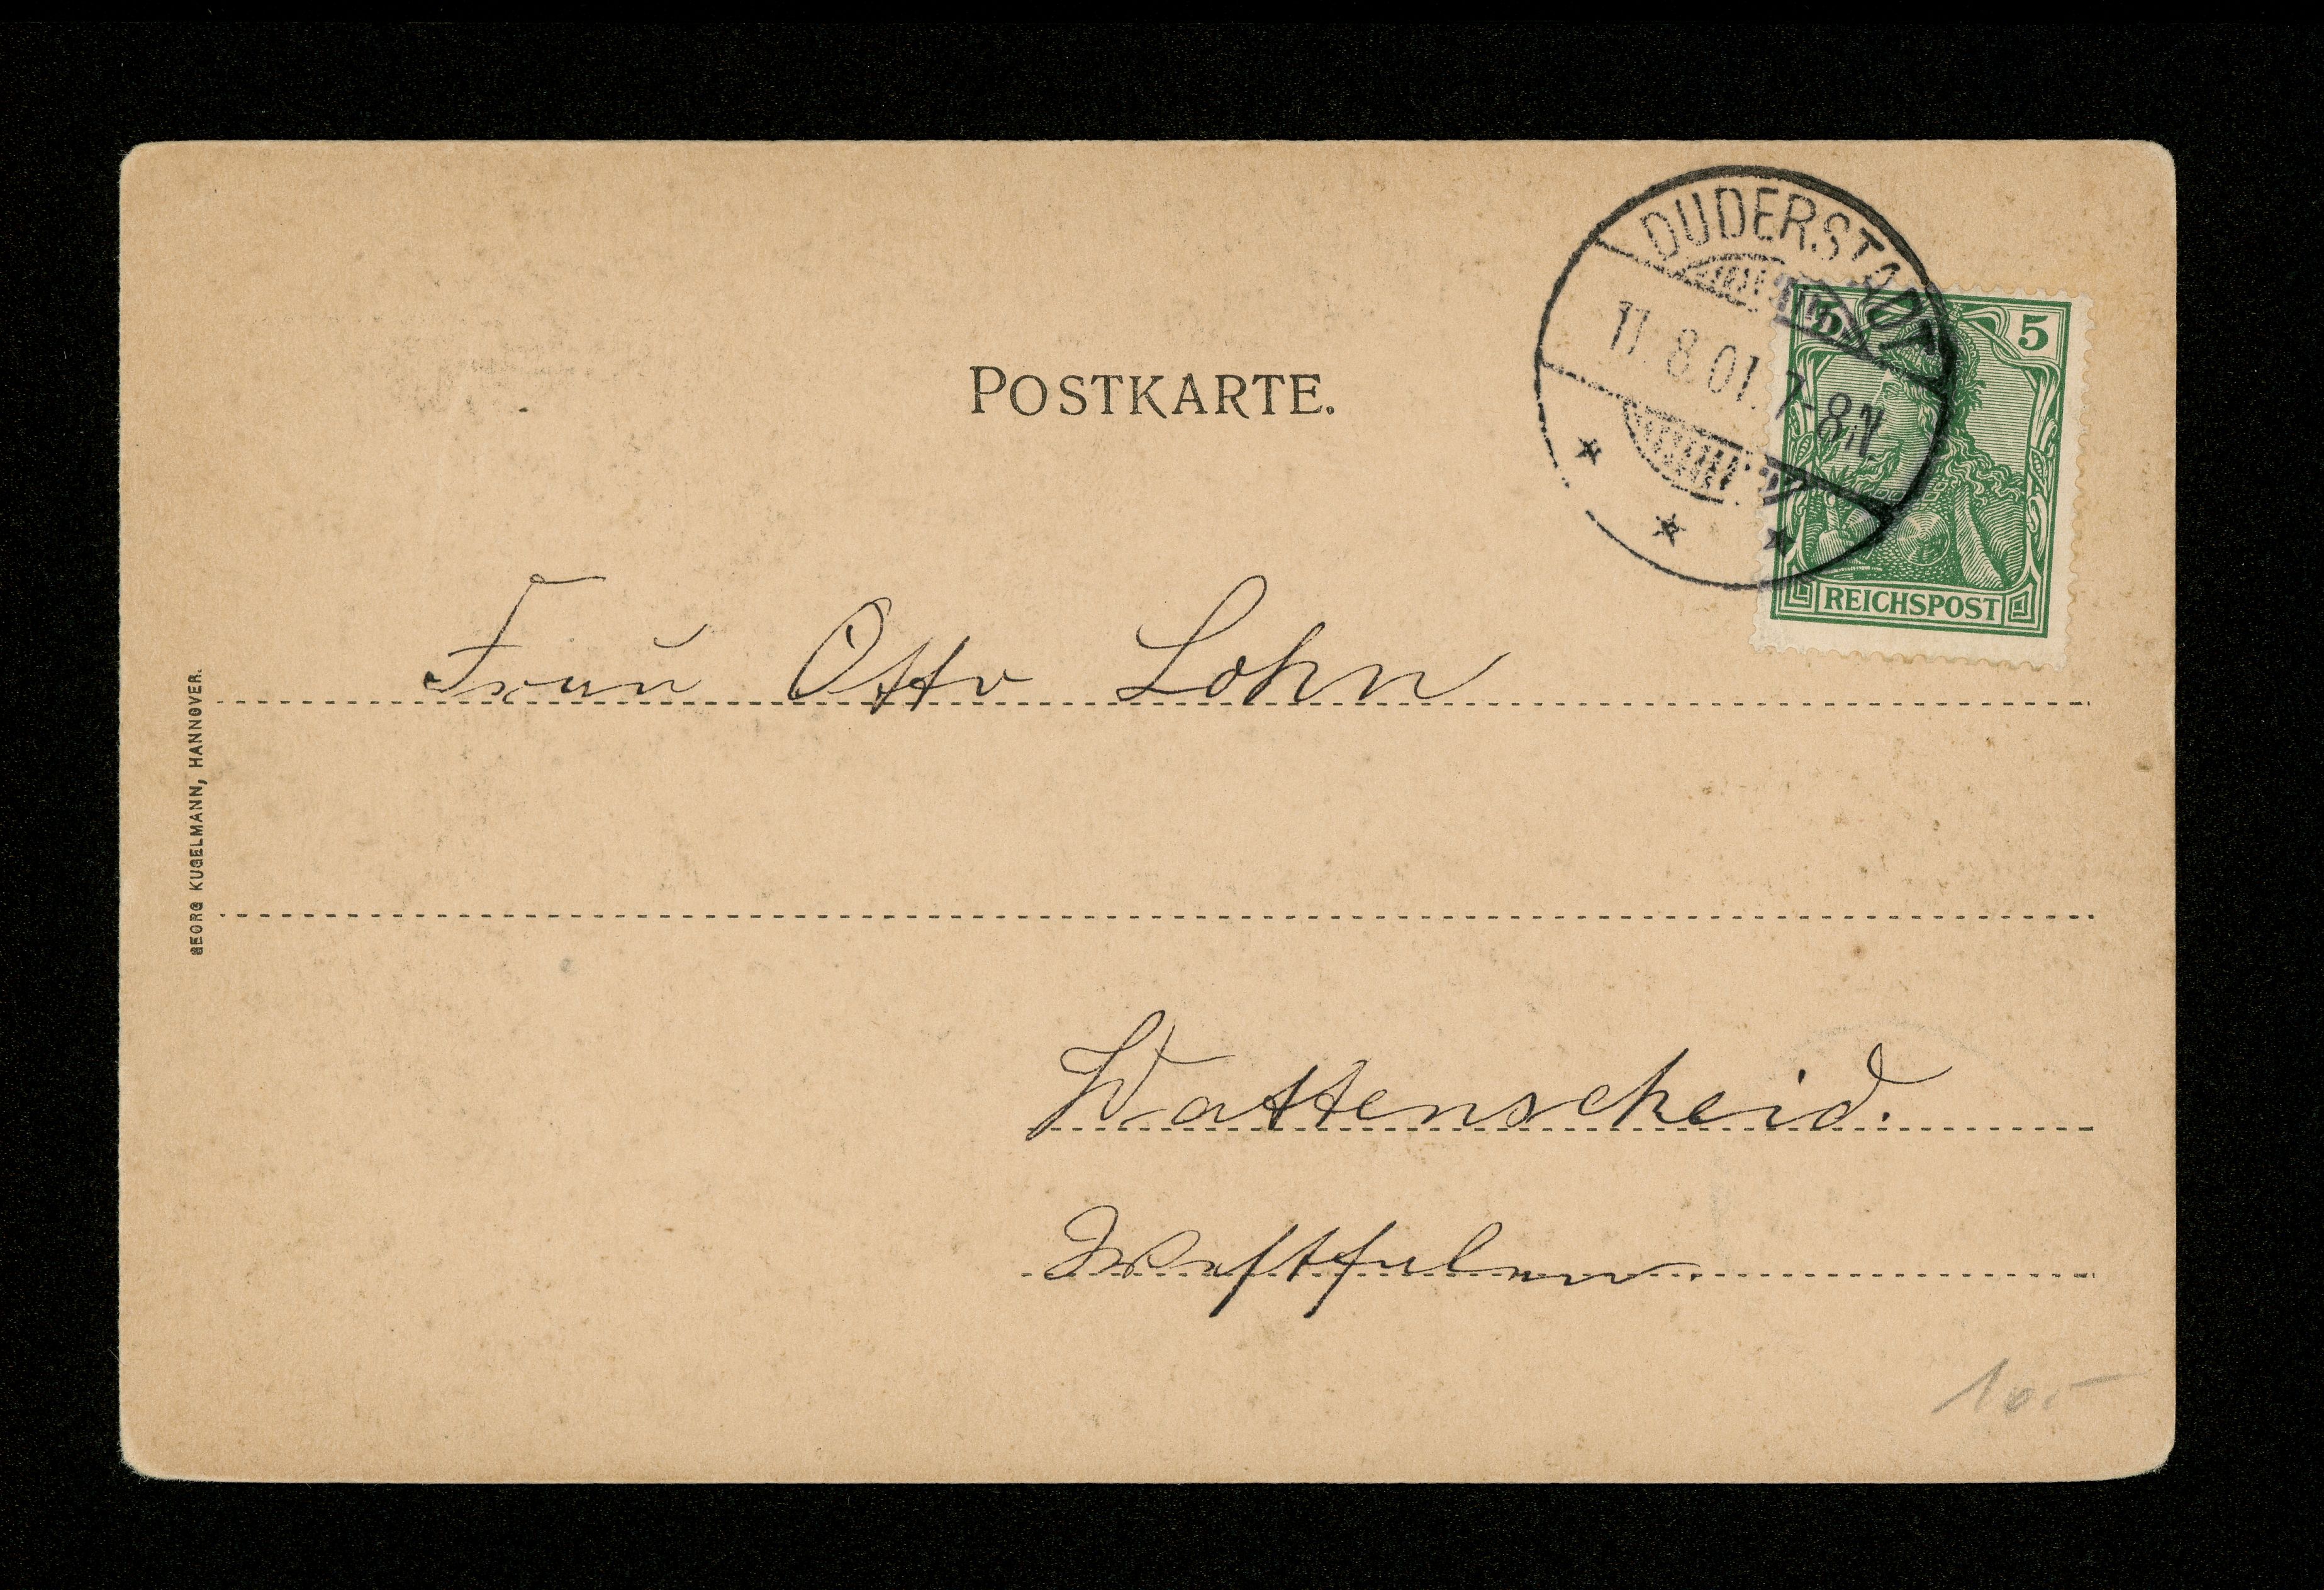 POSTKARTE.
DUDERSTADT
11.8.01.7-8N.
5
5
REICHSPOST
Frau Otto Lohn
GEORG KUGELMANN, HANNOVER.
Wattenscheid.
Westfalen.